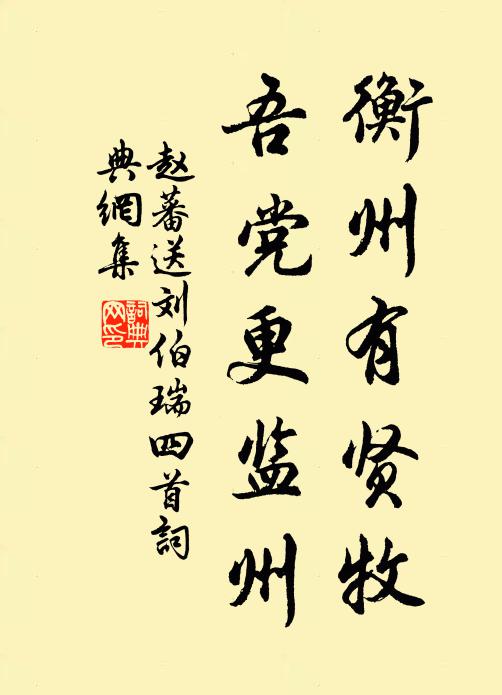 衡州有贤牧
吾党更监州
赵蕃送刘伯瑞四首詞
典網集
詞典網印